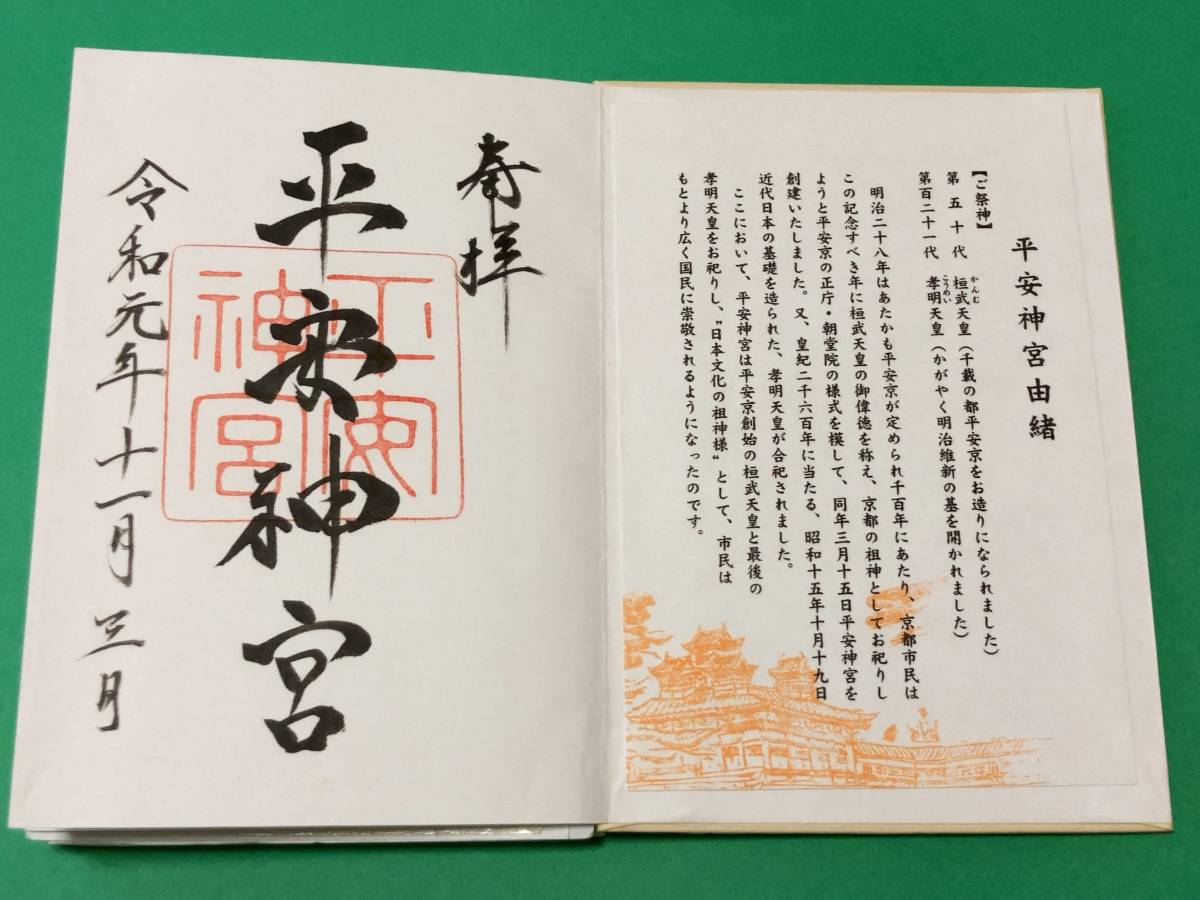 平安神宮由緒
【ご祭神】
第五十代 桓武天皇（千載の都平安京をお造りになられました）
かんむ
第百二十一代 孝明天皇（かがやく明治維新の基を開かれました）
こうめい
明治二十八年はあたかも平安京が定められ千百年にあたり、京都市民は
この記念すべき年に桓武天皇の御偉徳を称え、京都の祖神としてお祀りし
ようと平安京の正庁・朝堂院の様式を模して、同年三月十五日平安神宮を
創建いたしました。又、皇紀二千六百年に当たる、昭和十五年十月十九日
近代日本の基礎を造られた、孝明天皇が合祀されました。
ここにおいて、平安神宮は平安京創始の桓武天皇と最後の
孝明天皇をお祀りし、〝日本文化の祖神様〟として、市民は
もとより広く国民に崇敬されるようになったのです。
奉拝
平安神宮
平安
神宮
令和元年十一月三日